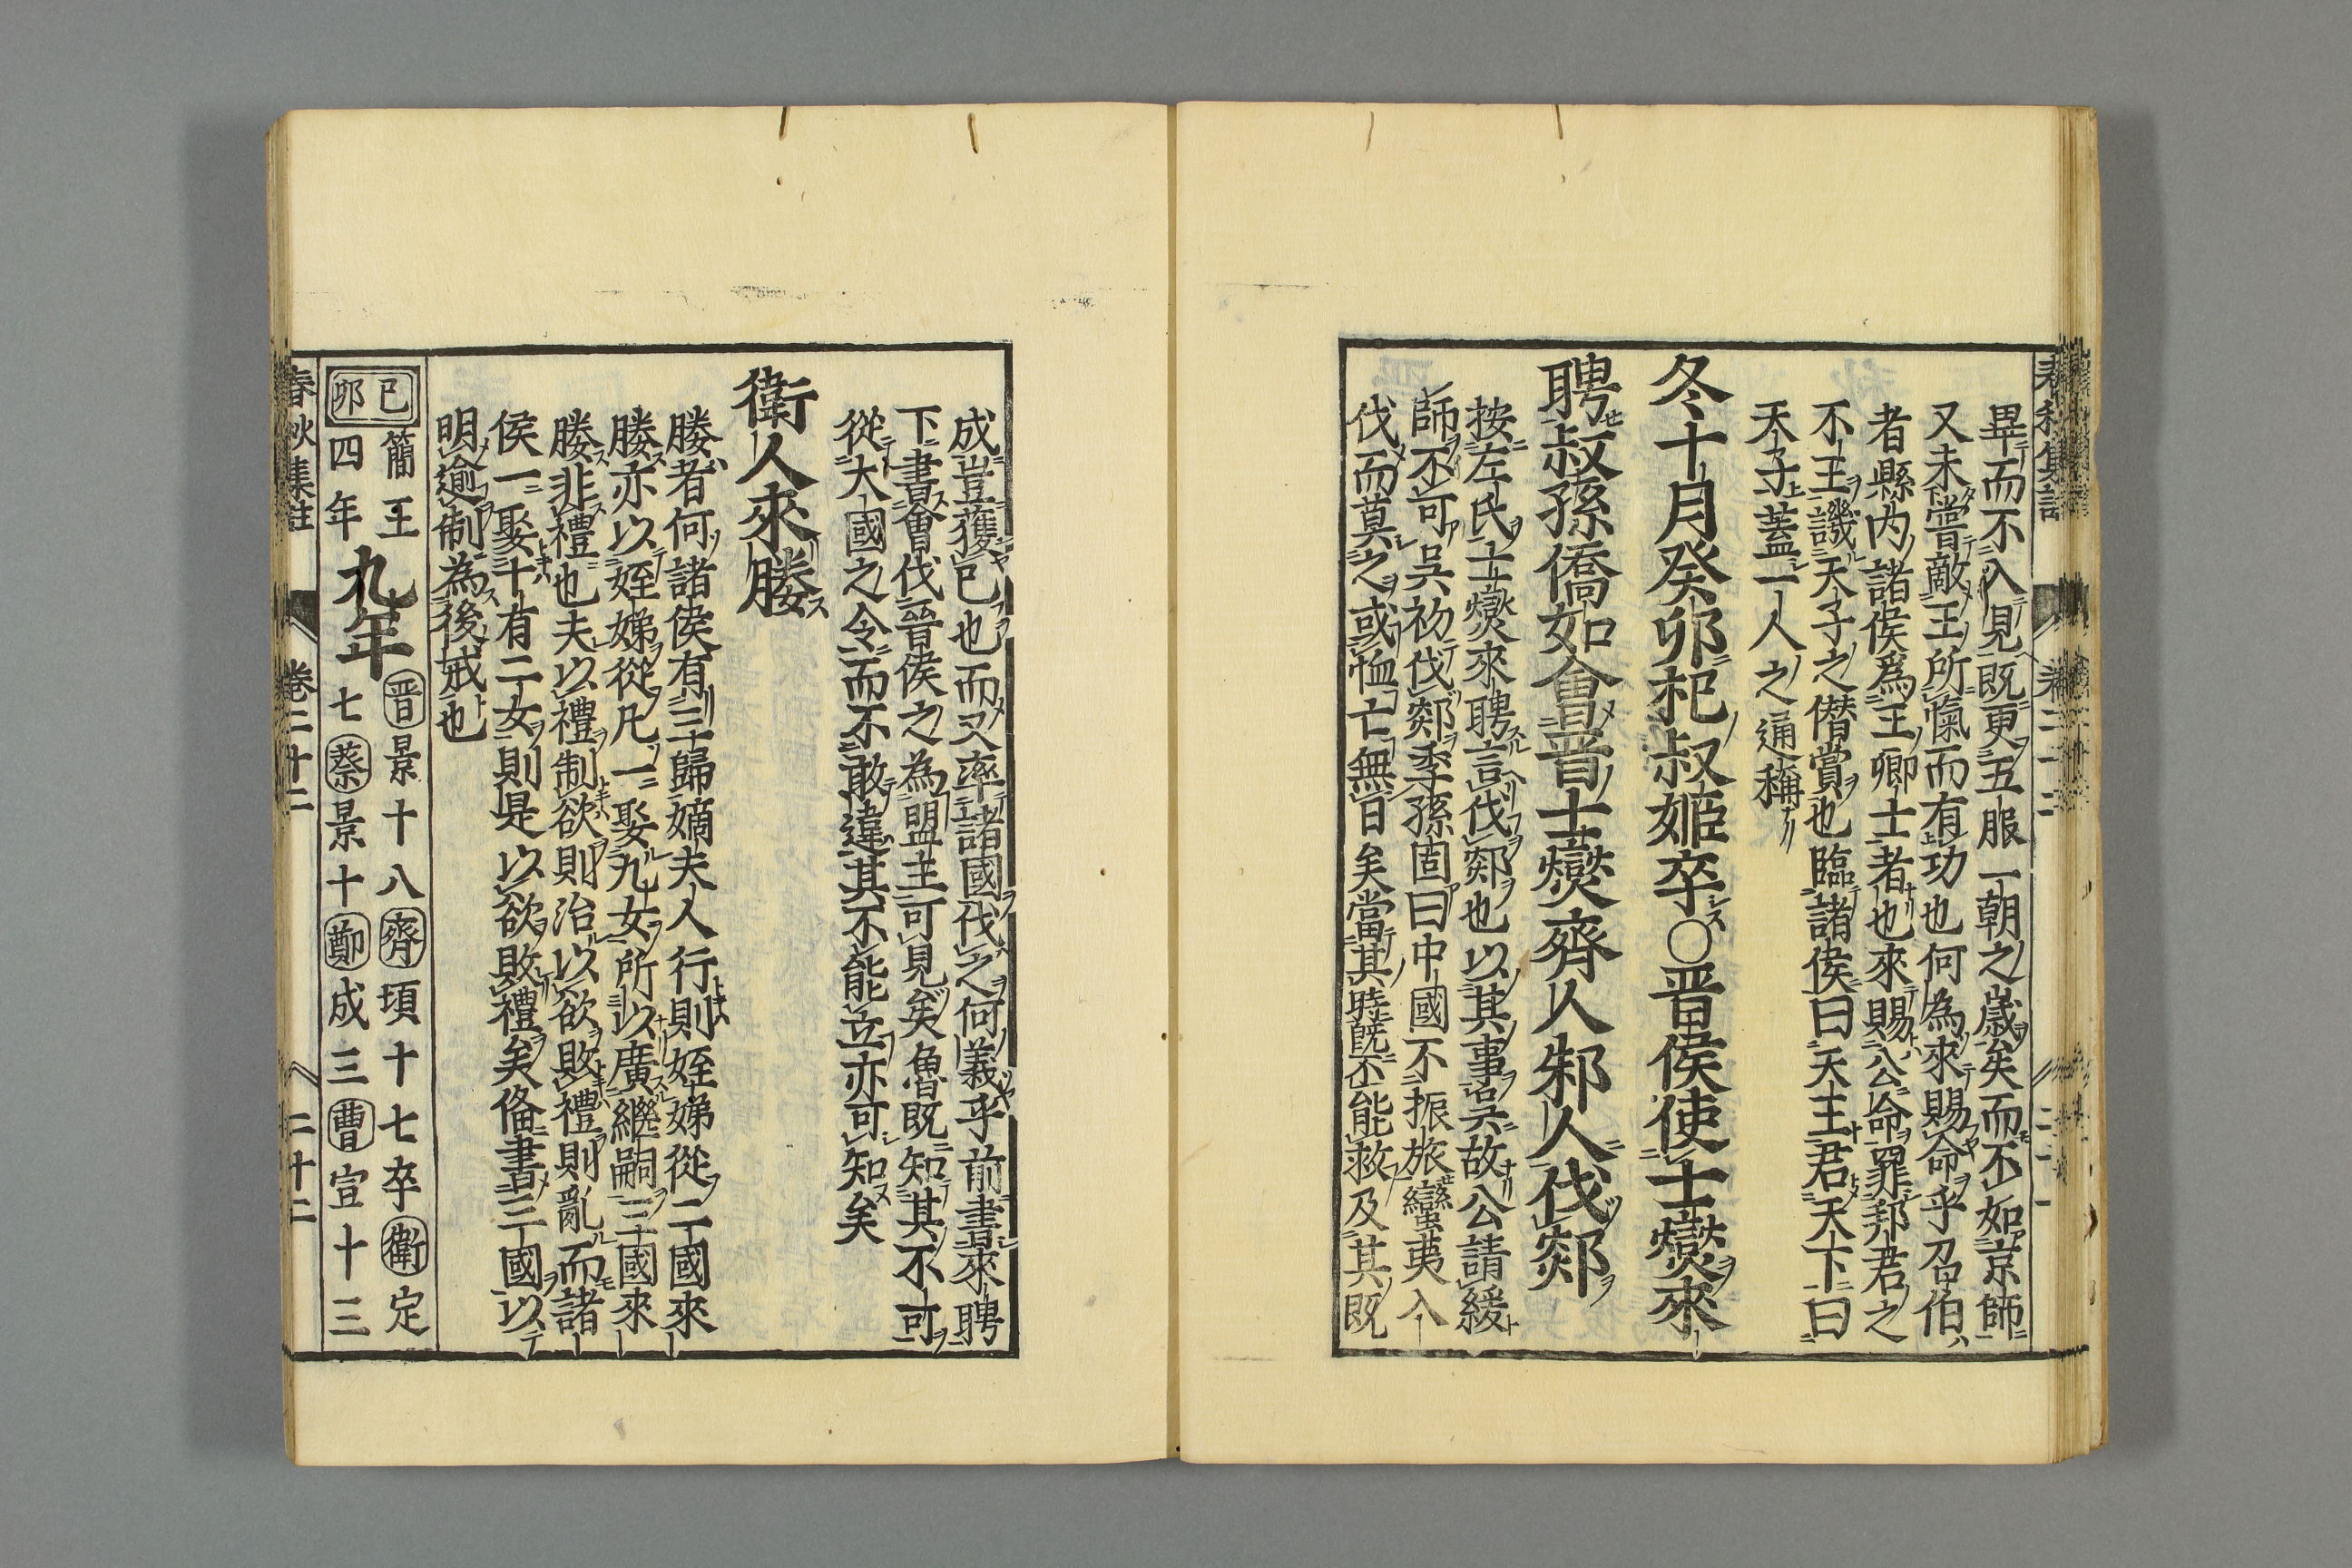 畢而不入見既更五服一朝之歲矣而不如京師
又未嘗敵王所愾而有功也何為來賜命乎召伯
者縣內諸侯爲王卿士者也來賜公命罪邦君之
不王譏天子之僣賞也臨諸侯曰天王君天下曰
天子蓋一人之通稱
冬十月癸卯杞叔姬卒〇晋侯使士燮來
聘叔孫僑如會晋士燮齊人邾人伐郯
按左氏士燮來聘言伐郯也以其事吳故公請緩
師不可吳初伐郯季孫固曰中國不振旅蠻夷入
伐而莫之或恤亡無日矣當其時既不能救及其既
成豈獲已也而又率諸國伐之何義乎前書來聘
下書會伐晉侯之為盟主可見矣魯既知其不可
從大國之令而不敢違其不能立亦可知矣
衛人來媵
媵者何諸侯有三歸嫡夫人行則姪娣從二國來
媵亦以姪娣從凡一娶九女所以廣繼嗣三國來
媵非禮也夫以禮制欲則治以欲敗禮則亂而諸
侯一娶十有二女則是以欲敗禮矣俻書三國以
明逾制為後戒也
己卯 簡王四年 九年 晋景十八 齊頃十七卒 衛定七 蔡景十 鄭成三 曹宣十三
春秋集註 卷二十二 二十二